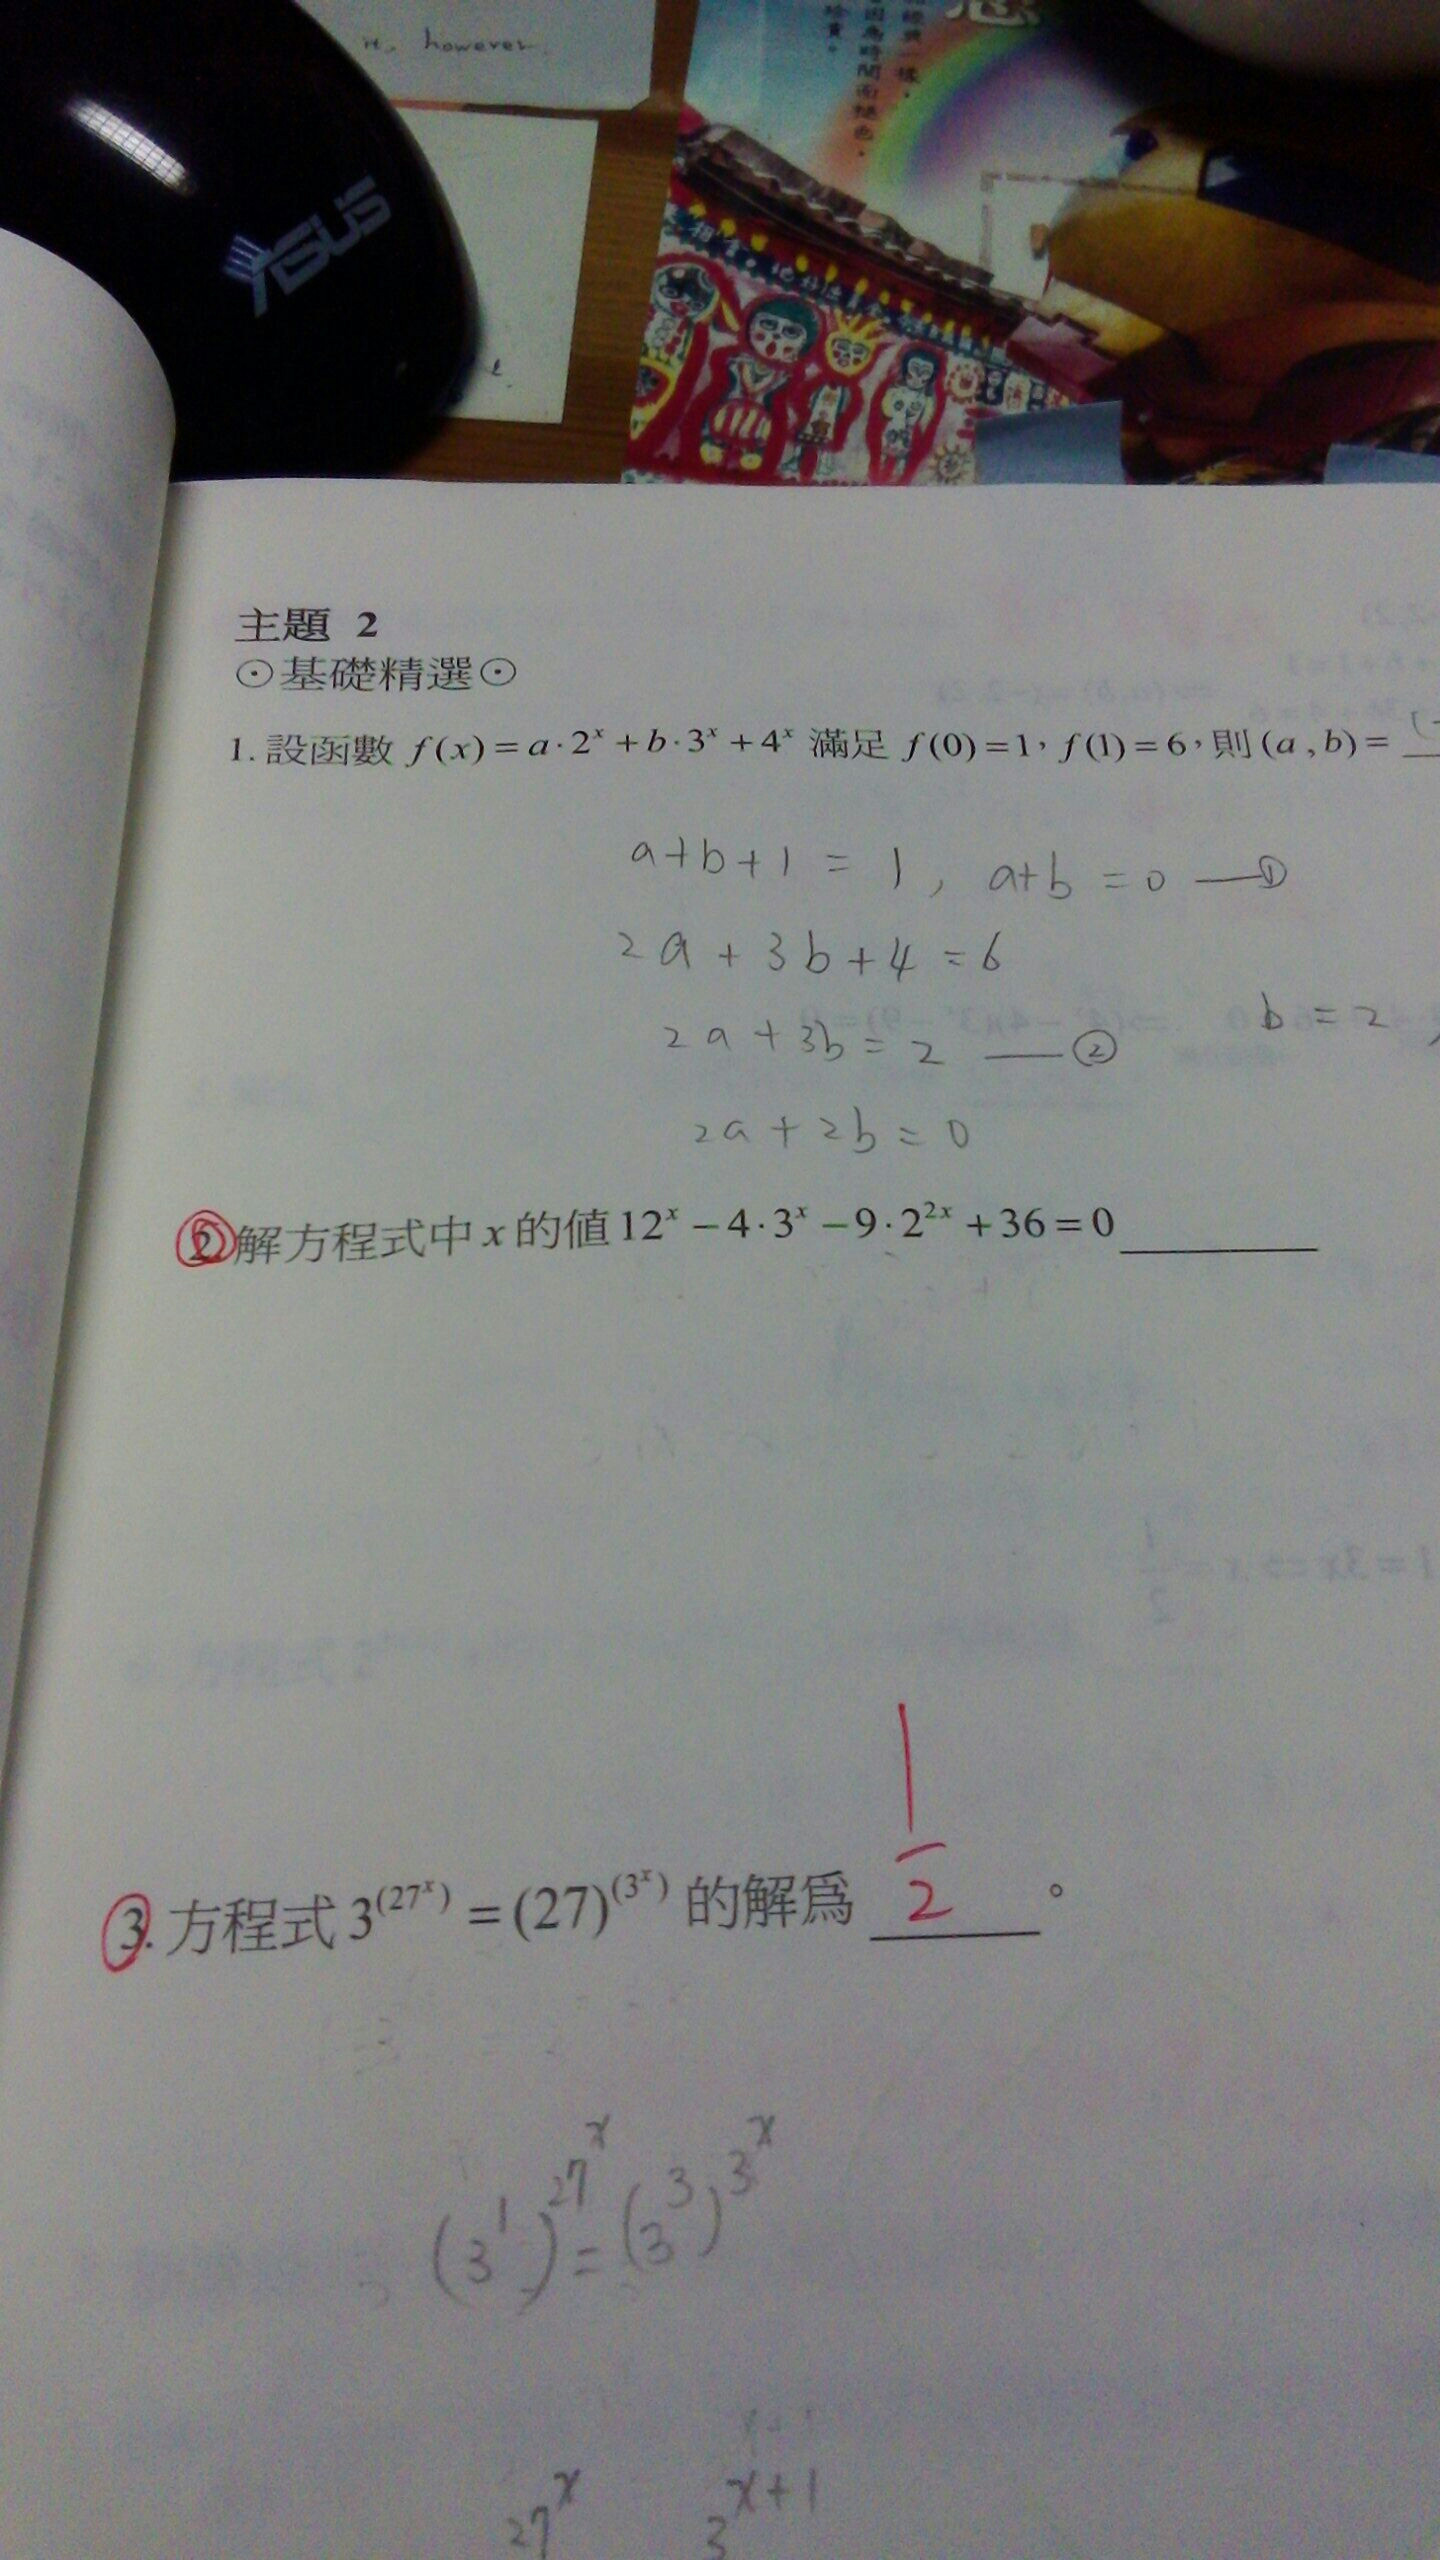 however
ASUS
因為時間而褪色。
珍貴。
主題 2
⊙基礎精選⊙
1. 設函數 f(x)=a·2^x+b·3^x+4^x 滿足 f(0)=1，f(1)=6，則(a,b)=
a+b+1 = 1, a+b = 0 —①
2a+3b+4 = 6
2a+3b = 2 —② b = 2,
2a+2b = 0
2. 解方程式中 x 的值 12^x − 4·3^x − 9·2^{2x} + 36 = 0
3. 方程式 3^{(27^x)} = (27)^{(3^x)} 的解為 1/2 。
(3^1)^{27^x} = (3^3)^{3^x}
27^x 3^{x+1}